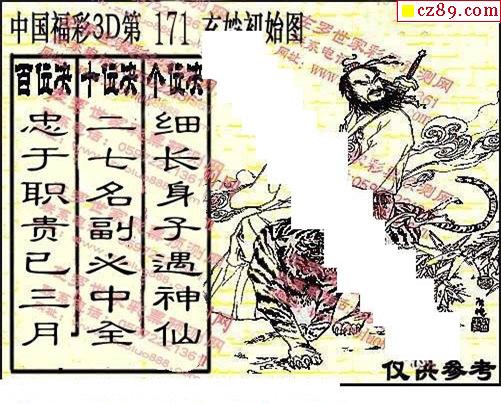 cz89.com
中国福彩3D第 171 玄妙初始图
百位决
忠于职贵已三月
十位决
二七名副必中全
个位决
细长身子遇神仙
仅供参考